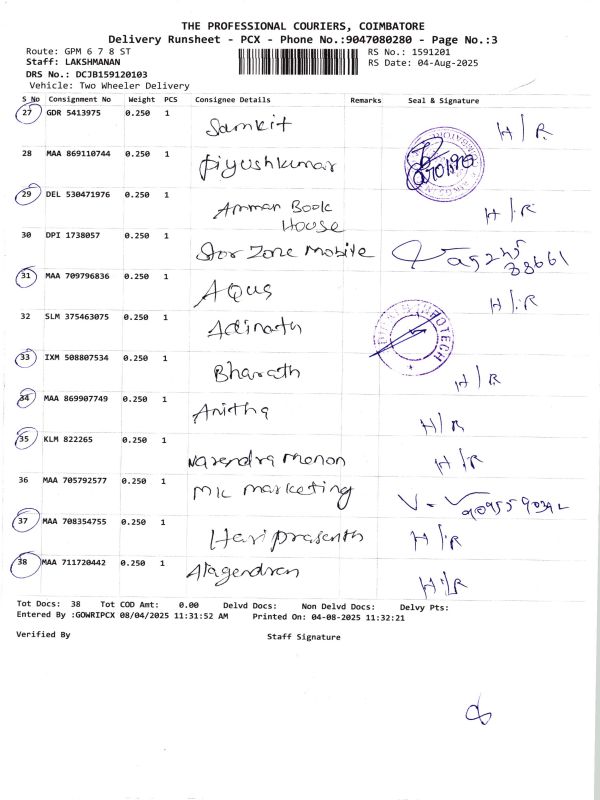 THE PROFESSIONAL COURIERS, COIMBATORE
Delivery Runsheet - PCX - Phone No.:9047080280 - Page No.:3
Route: GPM 6 7 8 ST RS No.: 1591201
Staff: LAKSHMANAN RS Date: 04-Aug-2025
DRS No.: DCJB159120103
Vehicle: Two Wheeler Delivery
S No Consignment No Weight PCS Consignee Details Remarks Seal & Signature
27 GDR 5413975 0.250 1 Samkit H/R
28 MAA 869110744 0.250 1 Piyushkumar
29 DEL 530471976 0.250 1 Amman Book House H/R
30 DPI 1738057 0.250 1 Star Zone Mobile
31 MAA 709796836 0.250 1 Aqus H/R
32 SLM 375463075 0.250 1 Adinath INFOTECH
33 IXM 508807534 0.250 1 Bharath H/R
34 MAA 869907749 0.250 1 Anitha H/R
35 KLM 822265 0.250 1 Narendra Menon H/R
36 MAA 705792577 0.250 1 MK marketing
37 MAA 708354755 0.250 1 Hariprasanth H/R
38 MAA 711720442 0.250 1 H/R
Tot Docs: 38 Tot COD Amt: 0.00 Delvd Docs: Non Delvd Docs: Delvy Pts:
Entered By :GOWRIPCX 08/04/2025 11:31:52 AM Printed On: 04-08-2025 11:32:21
Verified By Staff Signature